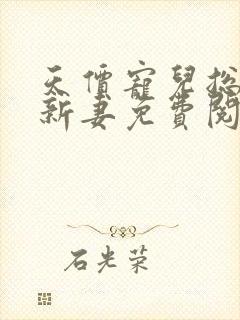 天價寵兒總
新妻免費閱
石光荣